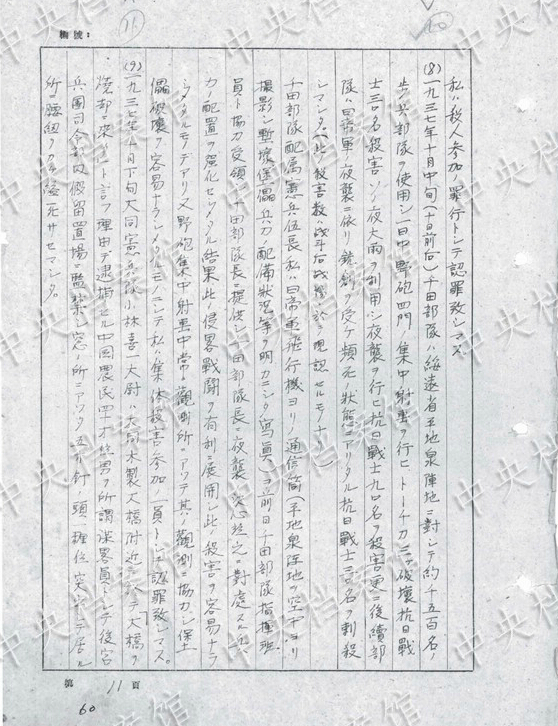 稿號:
私ハ殺人参加ノ罪行トシテ認罪致シマス
(8)一九三七年十月中旬(十日前后)千田部隊ハ綏遠省平地泉陣地ニ對シテ約千五百名ノ
歩兵部隊ヲ使用シ一日中野砲四門ノ集中射撃ヲ行ヒトーチカ ヲ破壊抗日戰
士三〇名殺害シソノ夜大雨ヲ利用シ夜襲ヲ行ヒ抗日戰士九〇名ヲ殺害更ニ後續部
隊ハ日帝軍ノ夜襲ニ依リ銃創ヲ受ケ頻死ノ状態ニアリタル抗日戰士三〇名ヲ刺殺
シマシタ(此ノ殺害数ハ战斗后战場ニ於テ現認セルモノナリ)
千田部隊配属憲兵伍長私ハ日帝軍飛行機ヨリノ通信筒(平地泉陣地ヲ空中ヨリ
撮影シ塹壕 兵力ノ配備状况等ヲ明カニシタル寫真)ヲ前日千田部隊指揮班
員ト協力受領シ千田部隊長ニ提供シ千田部隊長ノ夜襲 之ニ對處スル兵
力ノ配置ヲ强化セシメタル結果此ノ侵畧戰鬪ヲ有利ニ展開シ此ノ殺害ヲ容易ナラ
シメタルモノデアリ又野砲集中射撃中常ニ觀測所ニアツテ其ノ觀測ニ協力シ
破壊ヲ容易ナラシメタルモノニシテ私ハ集体殺害参加ノ一員トシテ認罪致シマス。
(9)一九三七年十月下旬大同憲兵隊長小林喜一大尉ハ大同木製大橋附近ニ於テ「大橋ヲ
燒却ニ来タ」ト言フ理由デ逮捕セル中国農民四十才位男ヲ所謂謀畧員トシテ後宮
兵團司令部内假留置場ニ監禁シ窓ノ所ニアツタ五寸釘ノ頭ノ揮位突出シテ居ル
所ニ腰紐ヲカケ縊死サセマシタ。
第 11 頁
60